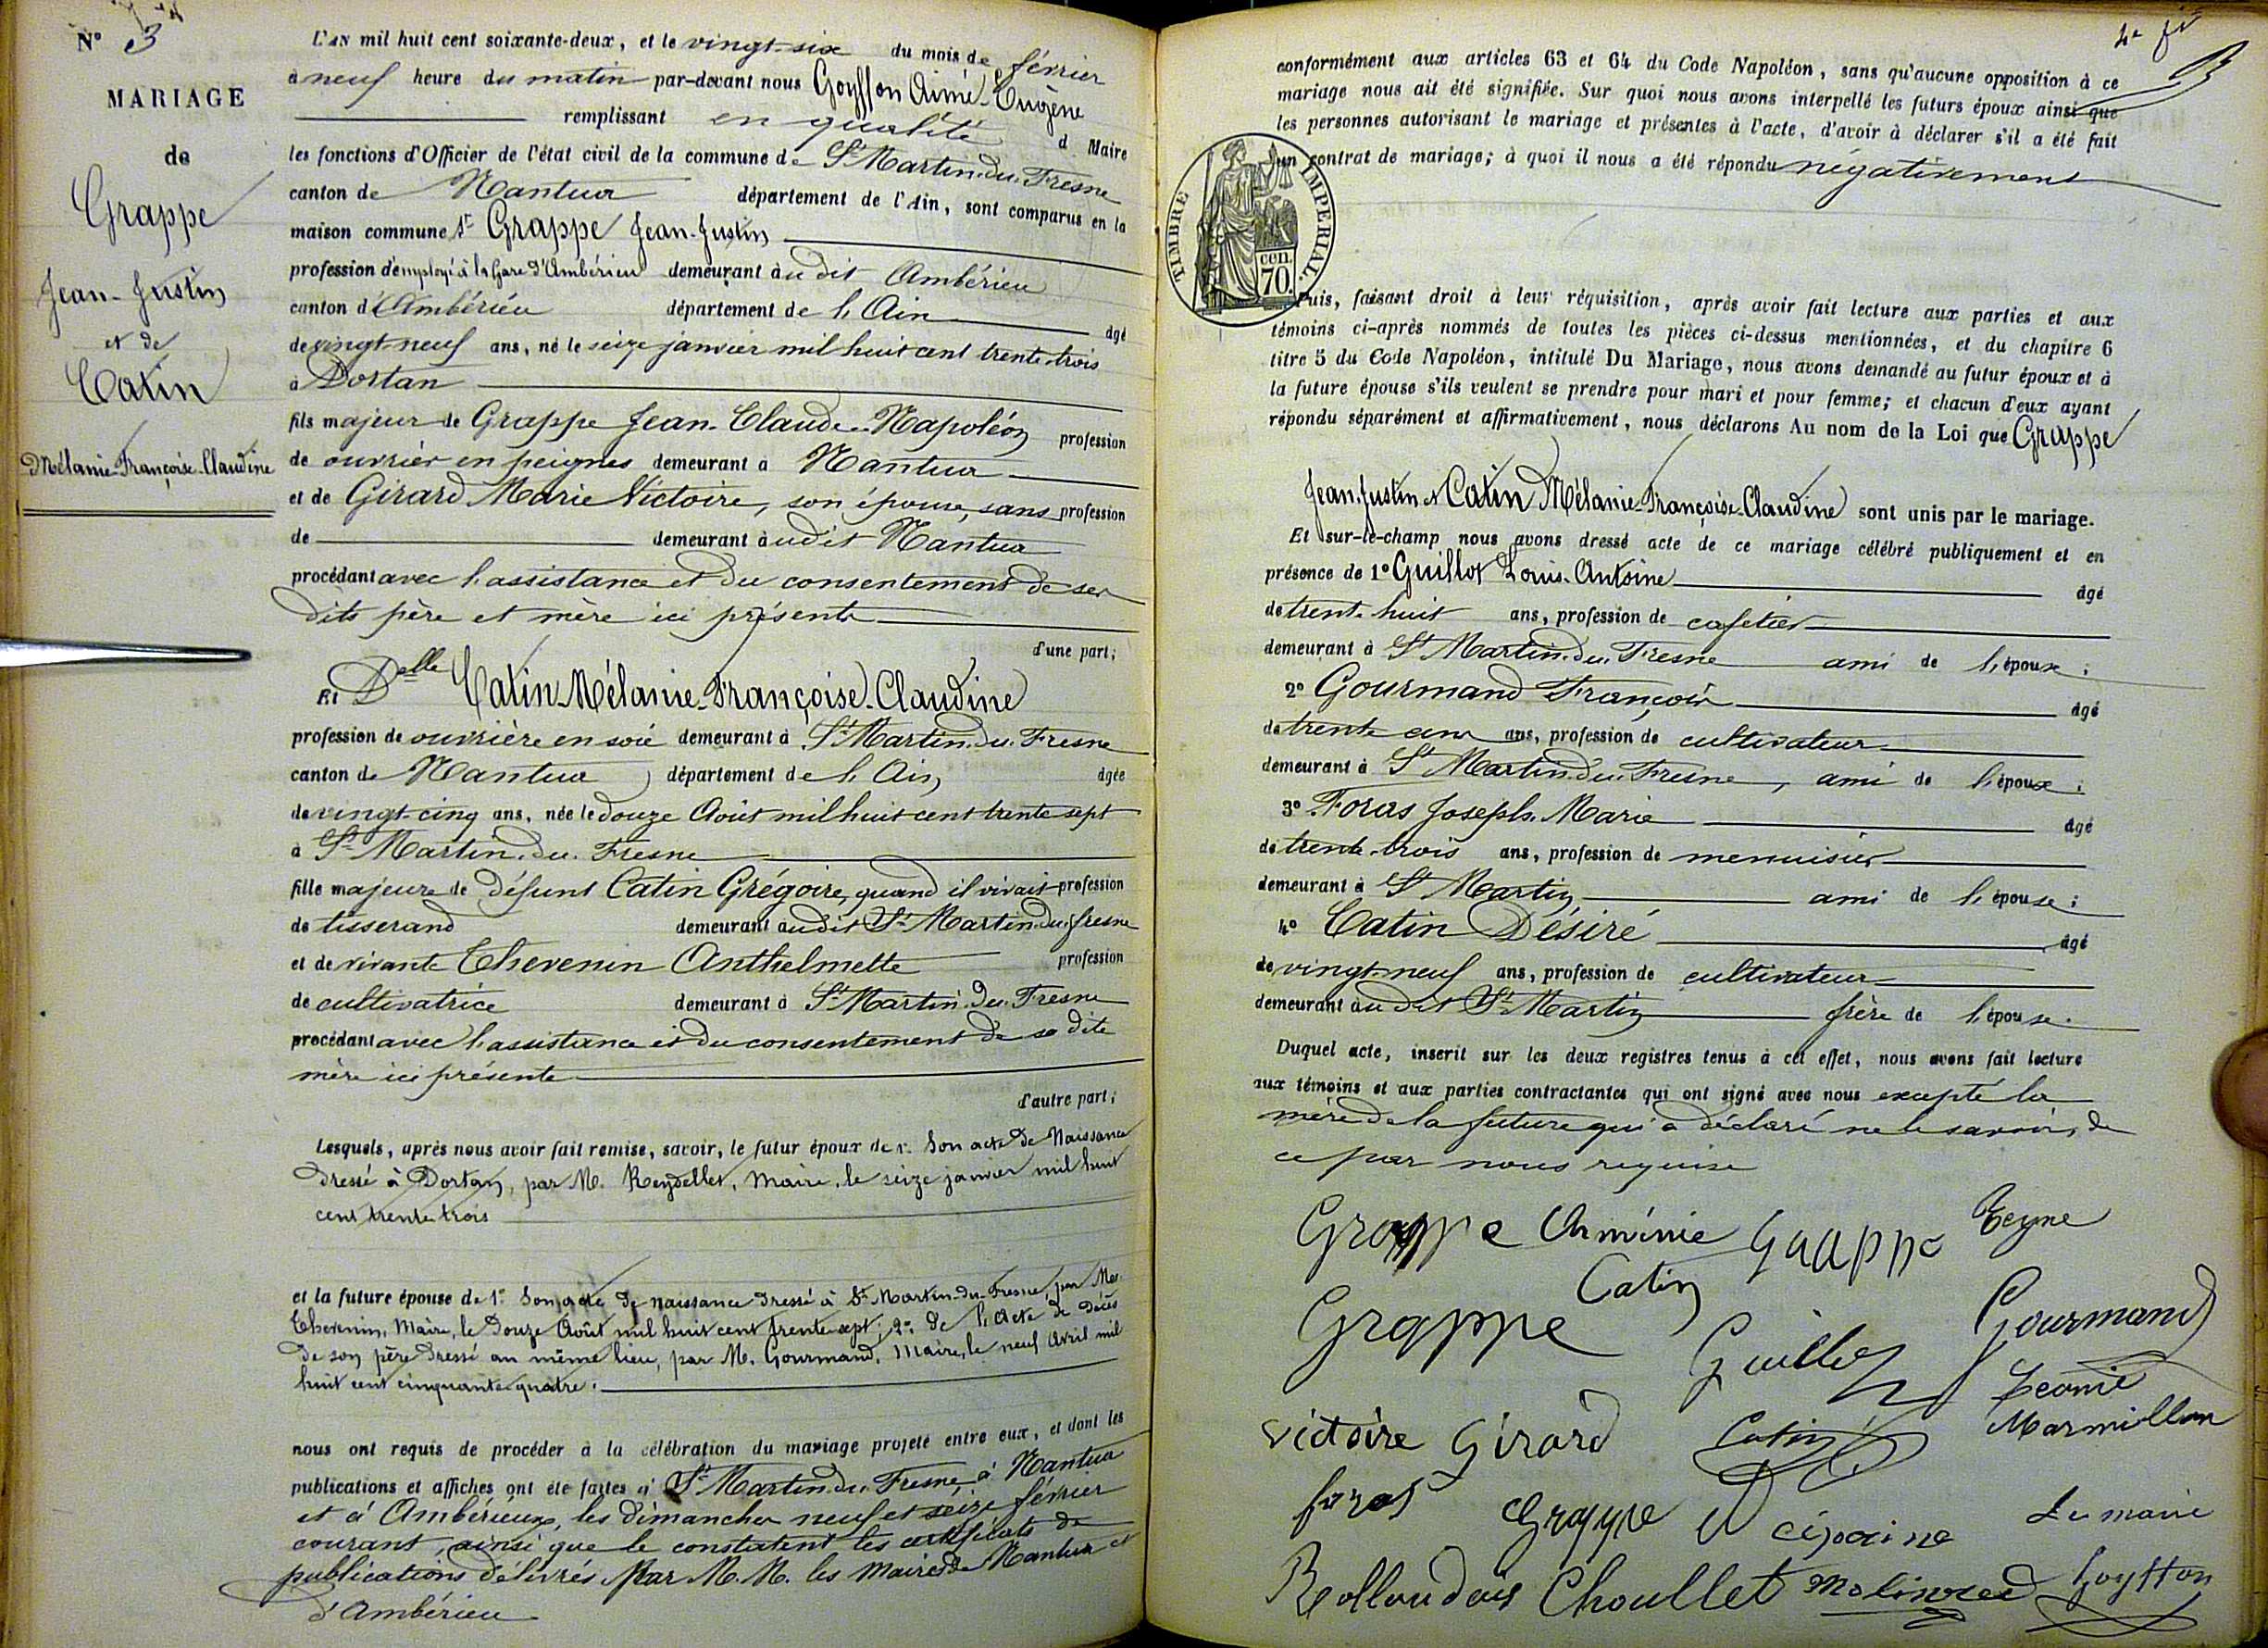 N° 3
MARIAGE
de
Grappe
Jean-Justin
et de
Catin
Mélanie-Françoise-Claudine
L'AN mil huit cent soixante-deux, et le vingt-six du mois de février
à neuf heure du matin par-devant nous Goyffon Aimé-Eugène
remplissant en qualité d Maire
les fonctions d'Officier de l'état civil de la commune de St Martin-du-Fresne
canton de Nantua département de l'Ain, sont comparus en la
maison commune Sr Grappe Jean-Justin
profession d'employé à la Gare d'Ambérieu demeurant audit Ambérieu
canton d'Ambérieu département de l'Ain âgé
de vingt-neuf ans, né le seize janvier mil huit cent trente-trois
à Dortan
fils majeur de Grappe Jean-Claude-Napoléon profession
de ouvrier en peignes demeurant à Nantua
et de Girard Marie Victoire, son épouse, sans profession
de demeurant audit Nantua
procédant avec l'assistance et du consentement de ses
dits père et mère ici présents
d'une part;
Et Delle Catin-Mélanie-Françoise-Claudine
profession de ouvrière en soie demeurant à St Martin-du-Fresne
canton de Nantua département de l'Ain âgée
de vingt-cinq ans, née le douze Août mil huit cent trente sept
à St Martin-du-Fresne
fille majeure de défunt Catin Grégoire, quand il vivait profession
de tisserand demeurant audit St Martin-du-fresne
et de vivante Thevenin Anthelmette profession
de cultivatrice demeurant à St Martin-du-Fresne
procédant avec l'assistance et du consentement de sa dite
mère ici présente
d'autre part;
Lesquels, après nous avoir fait remise, savoir, le futur époux de 1° Son acte de Naissance
dressé à Dortan, par M. Reydellet, Maire, le seize janvier mil huit
cent trente trois
et la future épouse de 1° Son acte de naissance dressé à St Martin-du-Fresne, par
Thevenin, Maire, le douze Août mil huit cent trente-sept; 2° de l'Acte de décès
de son père dressé au même lieu, par M. Gourmand, Maire, le neuf Avril mil
huit cent cinquante-quatre.
nous ont requis de procéder à la célébration du mariage projeté entre eux, et dont les
publications et affiches ont été faites à St Martin-du-Fresne, à Nantua
et à Ambérieux, les dimanches neuf et seize février
courant, ainsi que le constatent les certificats de
publications délivrés par M.M. les Maires de Nantua et
d'Ambérieu
conformément aux articles 63 et 64 du Code Napoléon, sans qu'aucune opposition à ce
mariage nous ait été signifiée. Sur quoi nous avons interpellé les futurs époux ainsi que
les personnes autorisant le mariage et présentes à l'acte, d'avoir à déclarer s'il a été fait
un contrat de mariage; à quoi il nous a été répondu négativement
TIMBRE IMPÉRIAL.
cen.
70.
Puis, faisant droit à leur réquisition, après avoir fait lecture aux parties et aux
témoins ci-après nommés de toutes les pièces ci-dessus mentionnées, et du chapitre 6
titre 5 du Code Napoléon, intitulé Du Mariage, nous avons demandé au futur époux et à
la future épouse s'ils veulent se prendre pour mari et pour femme; et chacun d'eux ayant
répondu séparément et affirmativement, nous déclarons Au nom de la Loi que Grappe
Jean-Justin et Catin Mélanie-Françoise-Claudine sont unis par le mariage.
Et sur-le-champ nous avons dressé acte de ce mariage célébré publiquement et en
présence de 1° Guillot Louis-Antoine âgé
de trente-huit ans, profession de cafetier
demeurant à St Martin-du-Fresne ami de l'époux;
2° Gourmand François âgé
de trente ans, profession de cultivateur
demeurant à St Martin-du-Fresne, ami de l'époux;
3° Foras Joseph-Marie âgé
de trente-trois ans, profession de menuisier
demeurant à St Martin ami de l'épouse;
4° Catin Désiré âgé
de vingt-neuf ans, profession de cultivateur
demeurant audit St Martin frère de l'épouse.
Duquel acte, inscrit sur les deux registres tenus à cet effet, nous avons fait lecture
aux témoins et aux parties contractantes qui ont signé avec nous excepté la
mère de la future qui a déclaré ne le savoir, de
ce par nous requise
Grappe Arménie Grappe
Catin
Grappe Guillot Gourmand
victoire Girard Catin Marmillon
foras Grappe
Le maire
Choullet Goyffon